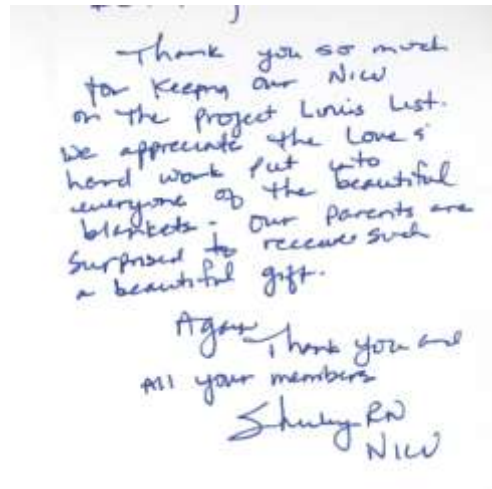 Thank you so much
for keeping our NICU
on the project Linus List.
We appreciate the Love &
hard work put into
everyone of the beautiful
blankets. Our parents are
surprised to receive such
a beautiful gift.
Again Thank you and
All your members
RN
NICU